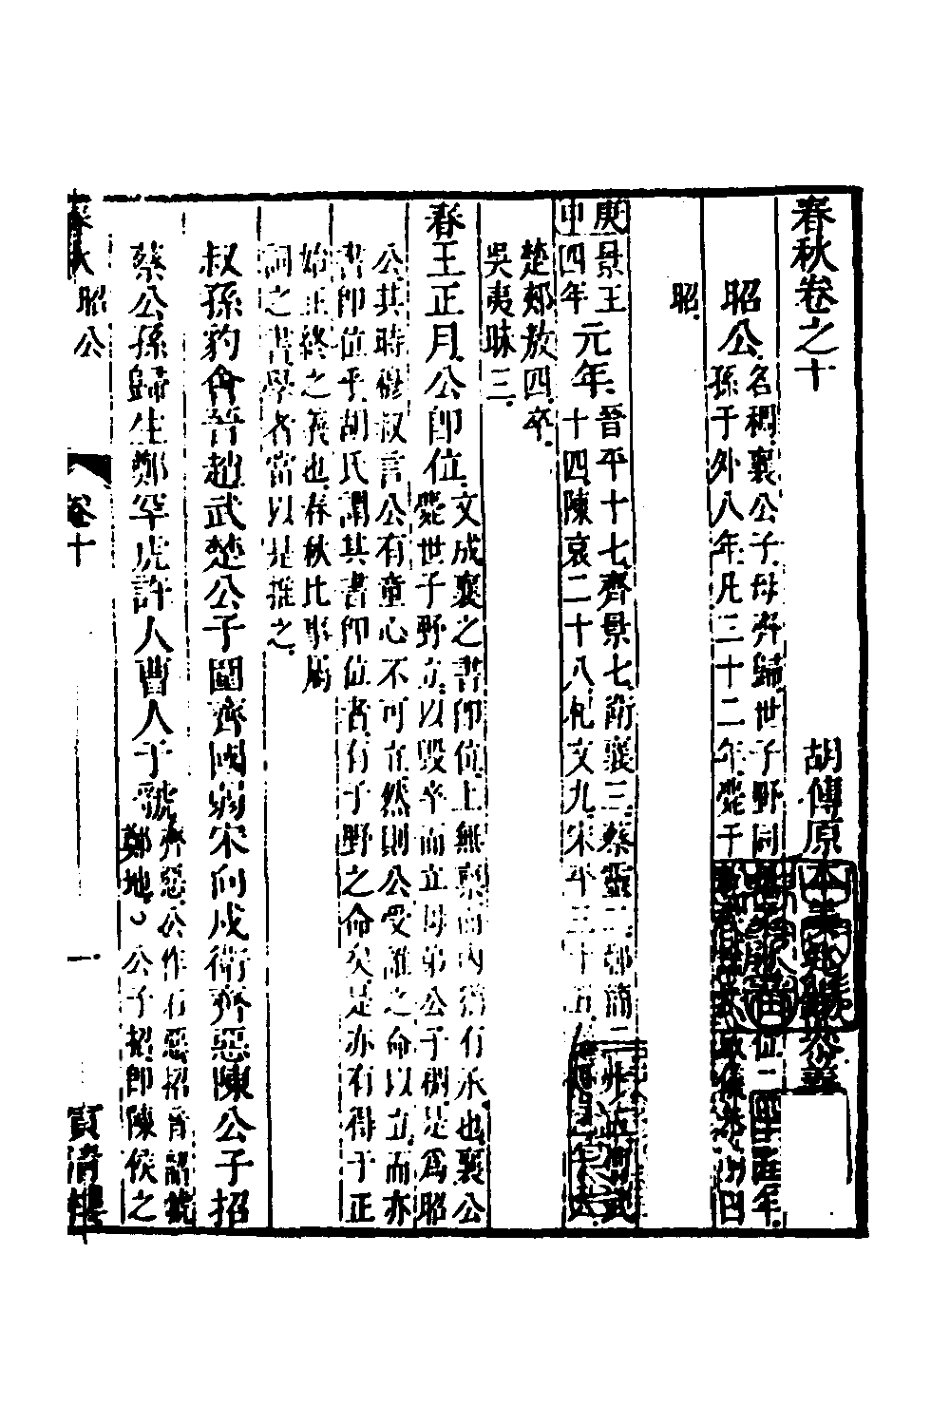 春秋卷之十
胡傳原本
昭公
名稠襄公子母齊歸世子野同
孫于外八年凡三十二年薨于
昭
庚景王
申四年
元年
晉平十七齊景七衛襄三蔡靈二鄭簡二
十四陳哀二十八杞文九宋平三十五
楚郟敖四卒
吳夷昧三
春王正月公卽位
文成襄之書卽位上無禀而內猶有承也襄公
薨世子野立以毀卒而立母弟公子稠是爲昭
公其時穆叔言公有童心不可立然則公受誰之命以立而亦
書卽位乎胡氏謂其書卽位者有子野之命矣是亦有得于正
始正終之義也春秋比事屬
詞之書學者當以是推之
叔孫豹會晉趙武楚公子圍齊國弱宋向戌衛齊惡陳公子招
蔡公孫歸生鄭罕虎許人曹人于虢
齊惡公作石惡招音韶虢
鄭地公子招卽陳侯之
春秋
昭公
卷十
一